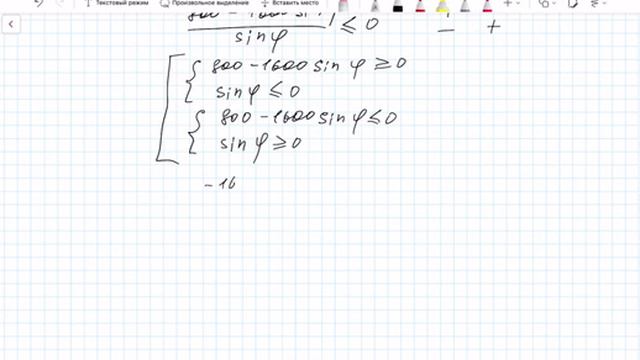 Текстовый режим Произвольное выделение Вставить место
≤ 0 − +
sin φ
800 - 1600 sin φ ≥ 0
sin φ ≤ 0
800 - 1600 sin φ ≤ 0
sin φ ≥ 0
- 16